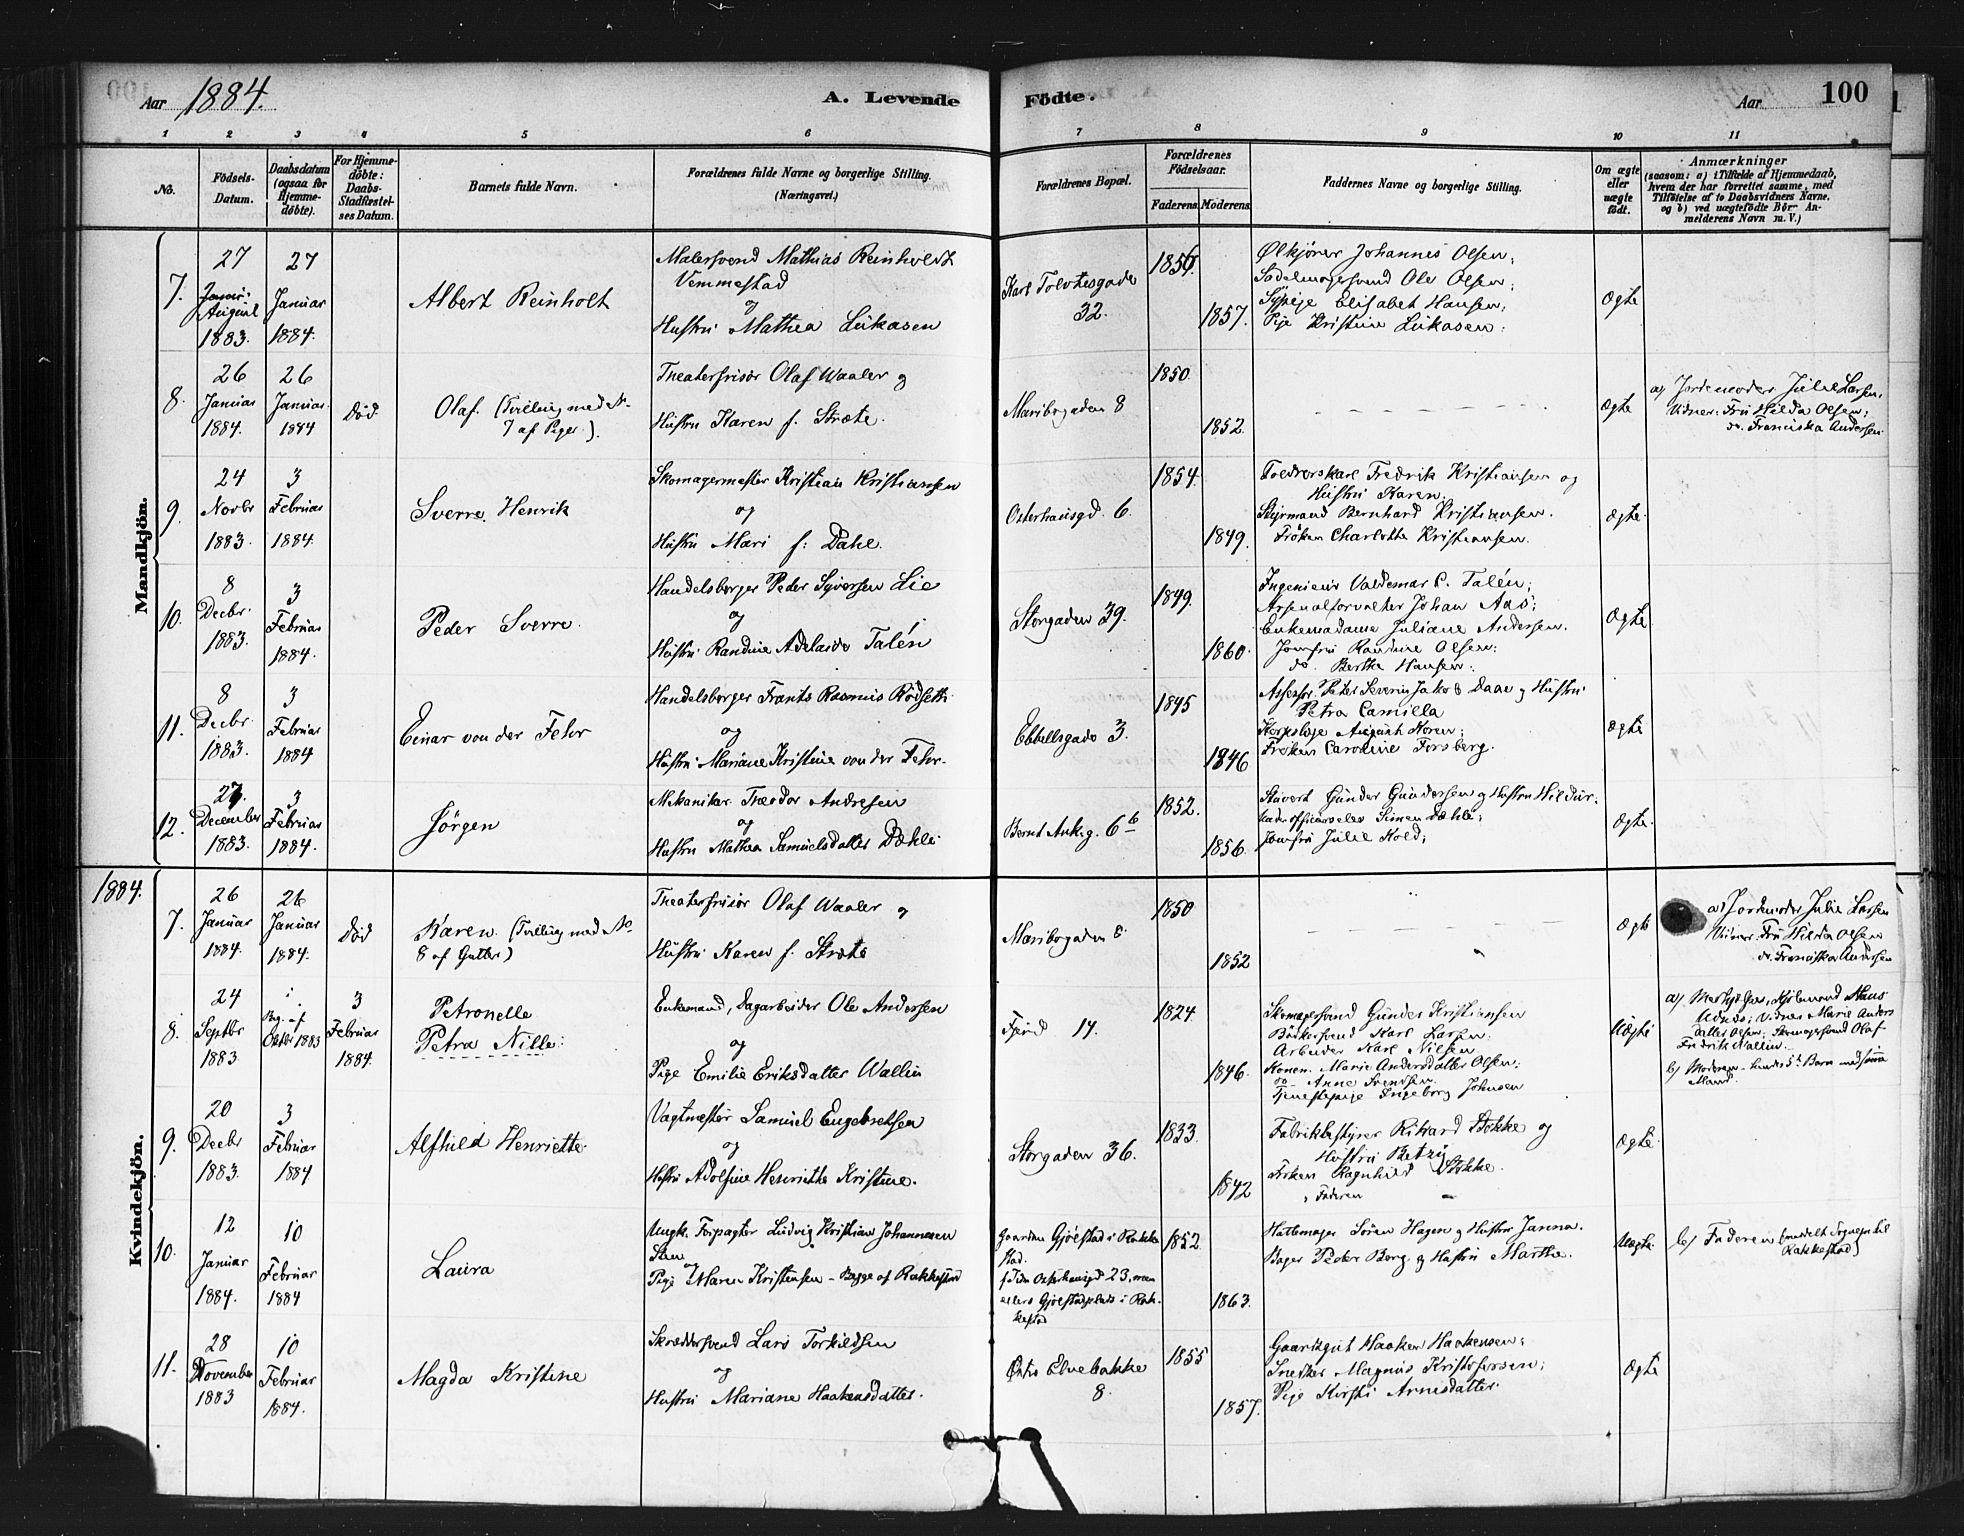 Aar 1884.
A. Levende Födte.
Aar 100
1 2 3 4 5 6 7 8 9 10 11
No.
Födsels-Datum.
Daabsdatum (ogsaa for Hjemme-döbte).
For Hjemme-döbte: Daabs-Stadfæstel-ses Datum.
Barnets fulde Navn.
Forældrenes fulde Navne og borgerlige Stilling. (Næringsvei.)
Forældrenes Bopæl.
Forældrenes Födselsaar.
Faderens. Moderens.
Faddernes Navne og borgerlige Stilling.
Om ægte eller uægte födt.
Anmærkninger
(saasom: a) i Tilfælde af Hjemmedaab,
hvem der har forrettet samme, med
Tilföielse af to Daabsvidners Navne.
og b) ved uægtefödte Börn An-
melderens Navn m. V.)
Mandkjön.
7.
27 August 1883.
27 Januar 1884.
Albert Reinholt
Malersvend Mathias Reinholdt
Vemmestad
og
Hustru Mathea Lukasen
Karl Tolvtesgade
32.
1857.
Ølkjører Johannes Olsen;
Sadelmagersvend Ole Olsen;
Sypige Elisabet Hansen;
Pige Kristine Lukasen.
Ægte
8.
26 Januar 1884.
26 Januar 1884
Död
Olaf. (Tvilling med No
7 af Piger.)
Theaterfrisör Olaf Waaler og
Hustru Karen f. Stræte.
Maribogaden 8
1850.
1852.
Ægte
a) Jordemoder Julie Larsen,
Vidner: Fru Hilda Olsen;
do. Franciska Andersen
9.
24 Novbr 1883.
3 Februar 1884.
Sverre Henrik
Skomagermester Kristian Kristiansen
og
Hustru Mari f: Dahl.
Osterhausgd. 6.
1854.
1849.
Fredrik Kristiansen og
Hustru Karen.
Styrmand Bernhard Kristiansen.
Fröken Charlotte Kristiansen.
Ægte.
10.
8 Decbr. 1883.
3 Februar 1884.
Peder Sverre.
Handelsborger Peder Syversen Lie
og
Hustru Randine Adelaide Talén
Storgaden 39.
1849.
1860.
Ingeniör Valdemar C. Talén;
Arsenalforvalter Johan Aas;
Enkemadame Juliane Andersen.
Jomfru Randine Olsen;
do. Berthe Hansen;
Ægte.
11.
8 Decbr. 1883.
3 Februar 1884
Einar von der Fehr
Handelsborger Frants Rasmus Rödseth
og
Hustru Mariane Kristine von der Fehr.
Ebbellsgade 3.
1845
1846
Assessor Peter Severin Jakob Daae og Hustru
Petra Camilla
Korpslæge August Koren;
Fröken Caroline Forsberg.
Ægte
12.
27. December 1883.
3 Februar 1884.
Jörgen
Mekaniker Theodor Andresen
og
Hustru Mathea Samuelsdatter Dæhli
Bernt Ankg. 6b
1852.
1856.
Stuvert Gunder Gundersen og Hustru Hildur.
Simen Dæhli;
Jomfru Julie Kold;
Ægte.
Kvindekjön.
1884.
7.
26 Januar 1884.
26 Januar 1884.
Död
Karen. (Tvilling med No
8 af Gutter)
Theaterfrisör Olaf Waaler og
Hustru Karen f. Stræte
Maribogaden 8
1850
1852
Ægte
a) Jordemoder Julie Larsen
Vidner: Fru Hilda Olsen
do. Franciska Andersen
8.
24 Septbr 1883.
i Beg. af Oktbr 1883
3 Februar 1884.
Petronelle
Petra Nille.
Enkemand, Dagarbeider Ole Andersen
og
Pige Emilie Eriksdatter Wallin
17.
1824
1846.
Skomagersvend Gunder Kristiansen
Bödkersvend Karl Larsen
Arbeider Karl Nilsen
Konen Marie Andersdatter Olsen;
do Anne Svendsen.
Tjenestepige Ingeborg Johnsen
Uægte
Vidner Marie Anders
datter Olsen; Skomagersvend Olaf
Fredrik Wallin.
b) Moderen - hendes 5te Barn med samme
Mand.
9.
20 Decbr 1883.
3 Februar 1884.
Alfhild Henriette.
Vagtmester Samuel Engebretsen
og
Hustru Adolfine Henriette Kristine.
Storgaden 36.
1833.
1842
Fabrikbestyrer Rikard Stokke og
Hustru Betzy
Fröken Ragnhild Stokke.
Faderen
Ægte.
10.
12 Januar 1884.
10 Februar 1884
Laura
Ungk. Forpagter Ludvig Kristian Johannesen
Steen
og
Pige Maren Kristensen - Begge af Rakkestad
Gaarden Gjölstad i Rakke
stad.
f. Tiden Osterhausgd 23, men
ellers Gjölstadplads i Rak-
kestad
1852.
1863.
Hattemager Sören Hagen og Hustru Janna.
Bager Peder Berg og Hustru Marthe.
Uægte.
b) Faderen (meddelt Sognepr. til
Rakkestad)
11.
28 November 1883
10 Februar 1884.
Magda Kristine
Skræddersvend Lars Torkildsen
og
Hustru Mariane Haakensdatter.
Östre Elvebakke
8.
1855
1857.
Gaardsgut Haaken Haakensen;
Snedker Magnus Kristofersen;
Pige Kirsti Arnesdatter
Ægte